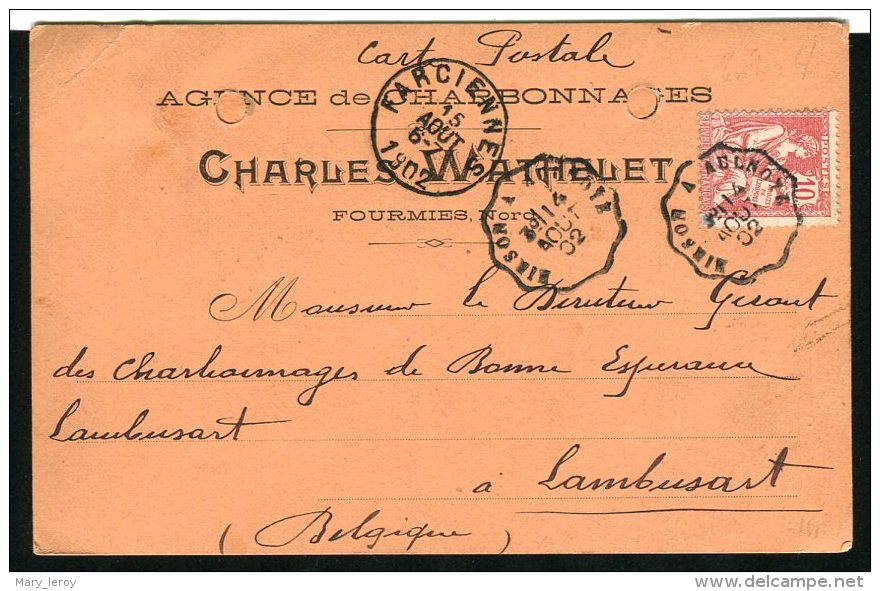 Carte Postale
AGENCE de CHARBONNAGES
CHARLES WATHELET
FOURMIES, Nord
FARCIENNES
15
AOUT
6-
1902
HIRSON A AULNOYE
3º 14
AOUT
02
HIRSON A AULNOYE
3º 14
AOUT
02
POSTES
10
Monsieur le Directeur Gérant
des Charbonnages de Bonne Esperance
Lambusart
à Lambusart
(Belgique)
Mary_leroy
delcampe.net